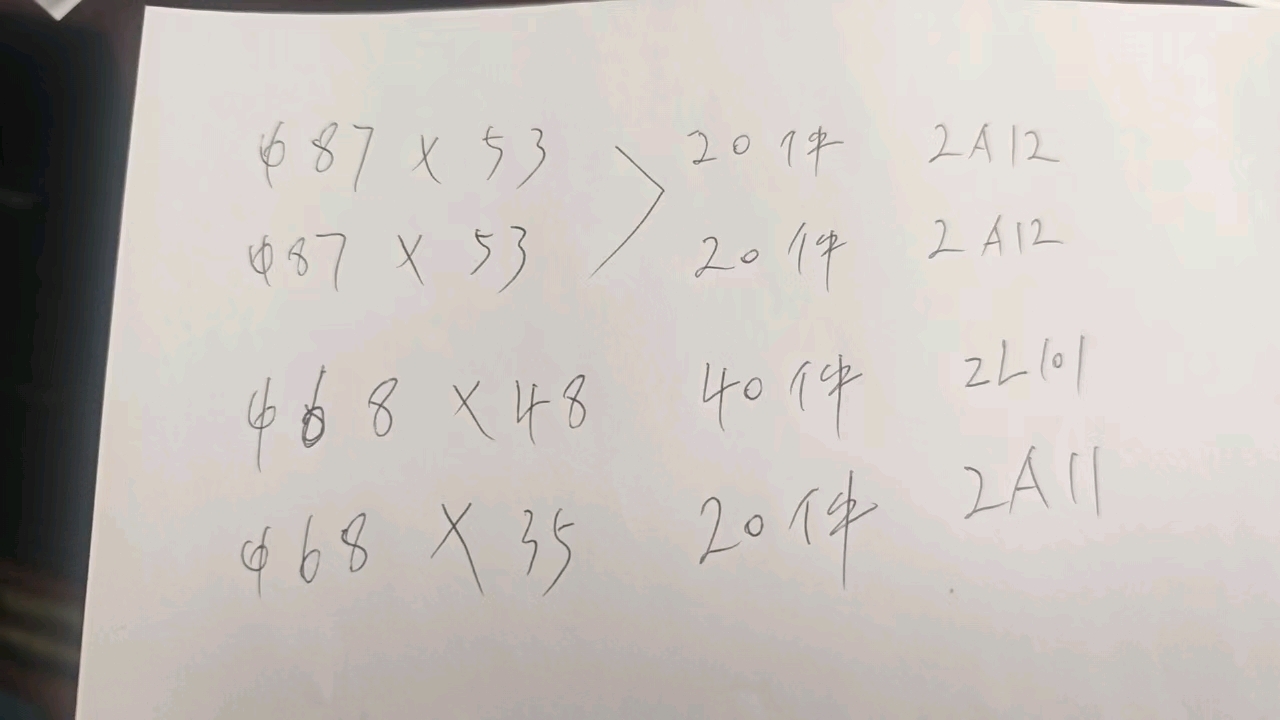 φ87×53 20件 2A12
φ87×53 20件 2A12
φ68×48 40件 ZL101
φ68×35 20件 2A11